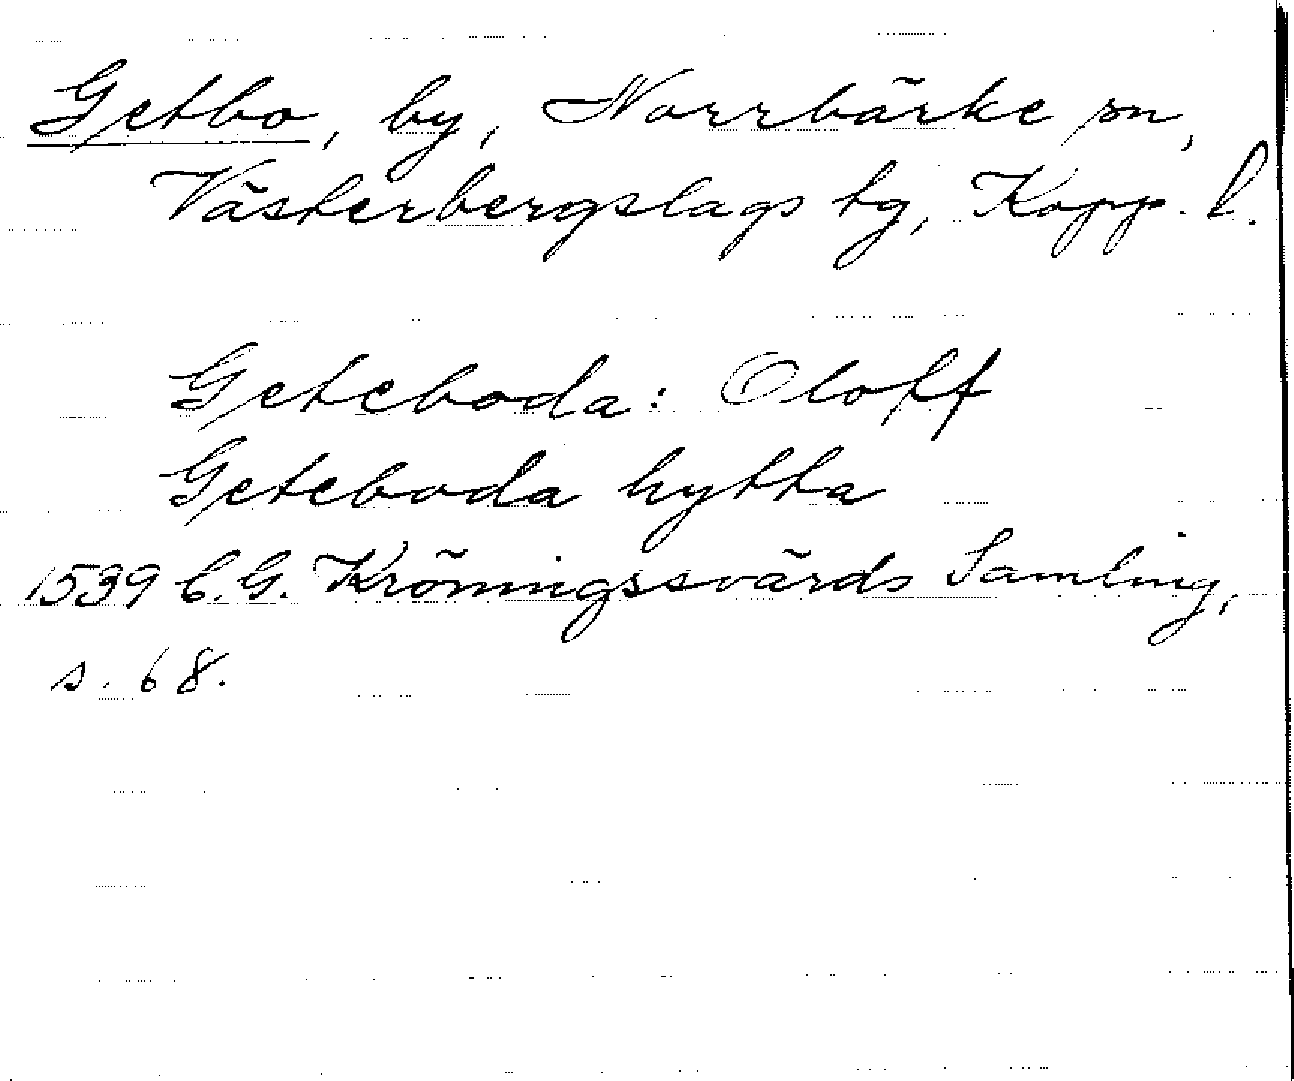 Getbo, by, Norrbärke sn,
Västerbergslags tg, Kopp. l.
Geteboda: Oloff
Geteboda hytta
1539 C.G. Kröningssvärds Samling,
s. 68.